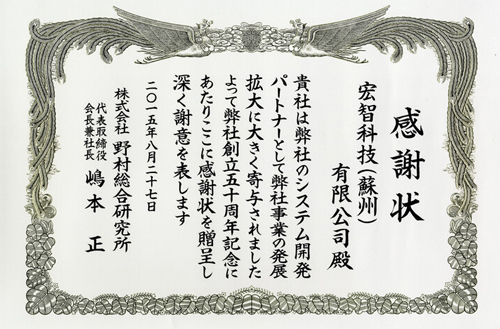 感謝状
宏智科技(蘇州)
有限公司殿
貴社は弊社のシステム開発
パートナーとして弊社事業の発展
拡大に大きく寄与されました
よって弊社創立五十周年記念に
あたりここに感謝状を贈呈し
深く謝意を表します
二〇一五年八月二十七日
株式会社 野村総合研究所
代表取締役
会長兼社長 嶋本 正